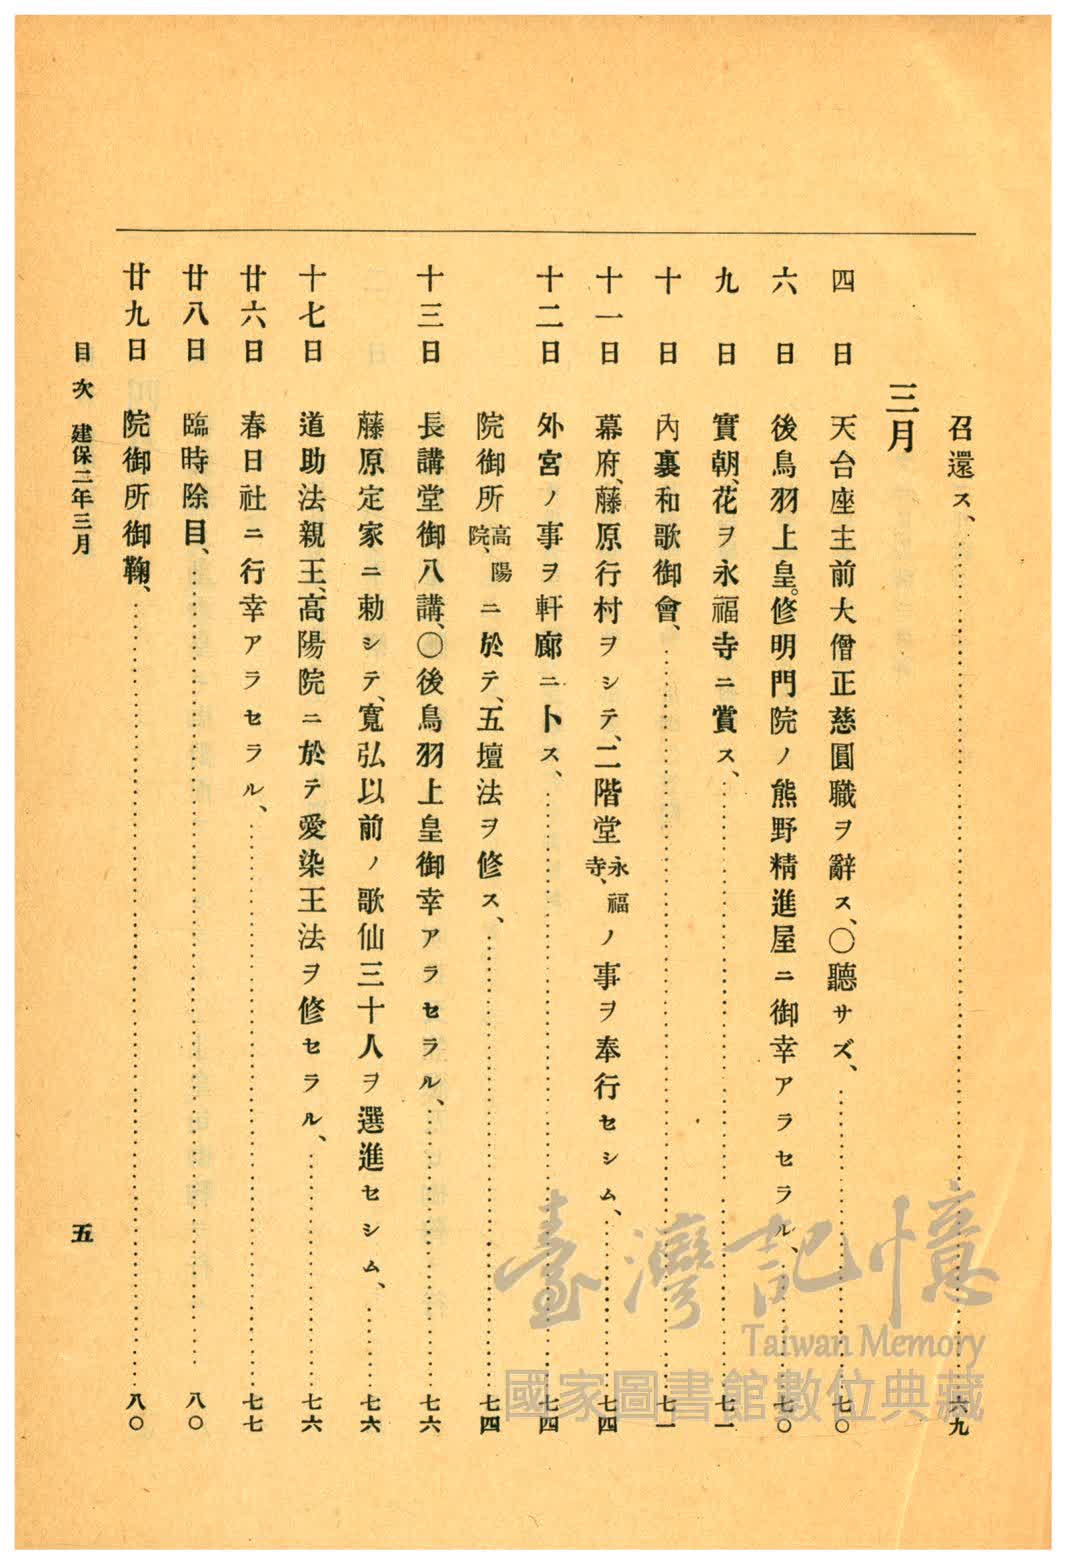 召還ス、……六九
三月
四日 天台座主前大僧正慈圓職ヲ辭ス、〇聽サズ、……七〇
六日 後鳥羽上皇。修明門院ノ熊野精進屋ニ御幸アラセラル、……七〇
九日 實朝、花ヲ永福寺ニ賞ス、……七一
十日 內裏和歌御會、……七一
十一日 幕府、藤原行村ヲシテ、二階堂永福寺、ノ事ヲ奉行セシム、……七四
十二日 外宮ノ事ヲ軒廊ニトス、……七四
院御所高陽院、ニ於テ、五壇法ヲ修ス、……七四
十三日 長講堂御八講、〇後鳥羽上皇御幸アラセラル、……七六
藤原定家ニ勅シテ、寬弘以前ノ歌仙三十人ヲ選進セシム、……七六
十七日 道助法親王、高陽院ニ於テ愛染王法ヲ修セラル、……七六
廿六日 春日社ニ行幸アラセラル、……七七
廿八日 臨時除目、……八〇
廿九日 院御所御鞠、……八〇
目次 建保二年三月
五
臺灣記憶
Taiwan Memory
國家圖書館數位典藏